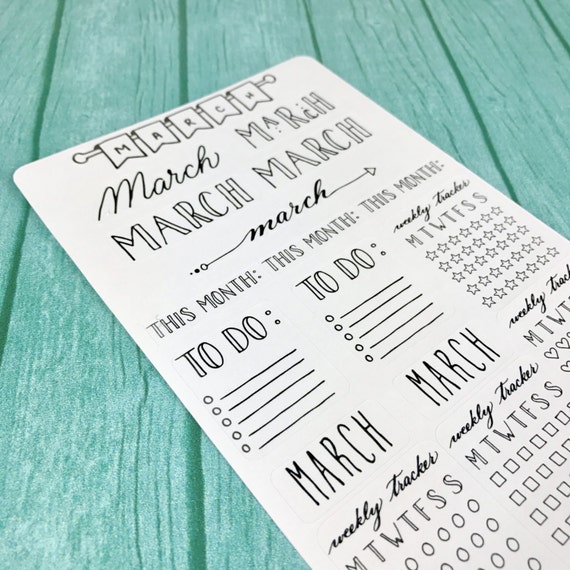 MARCH
March
MARCH
MARCH MARCH
march
THIS MONTH: THIS MONTH: THIS MONTH:
TO DO:
TO DO:
weekly tracker
M T W T F S S
MARCH
MARCH
weekly tracker
M T W T F S S
weekly tracker
M T W T F S S
weekly tracker
M T W T F S S